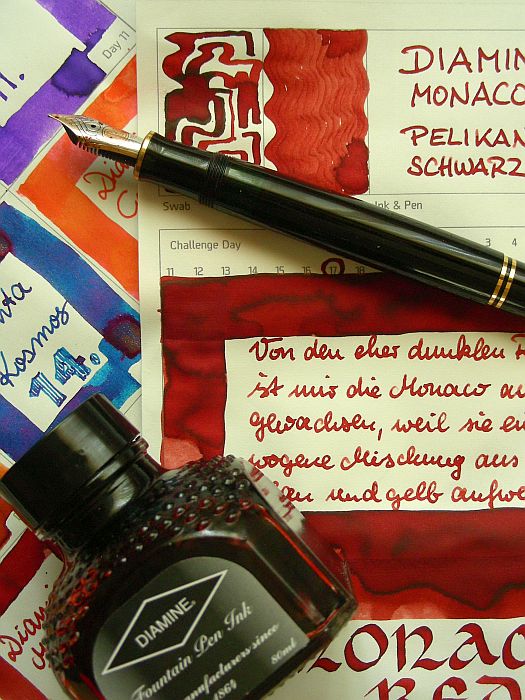 Day 11
11.
DIAMINE
MONACO
PELIKAN
SCHWARZ
Swab
Ink & Pen
Challenge Day
3 4
11 12 13 14 15 16 17 18
Von den eher dunklen
ist mir die Monaco
gewachsen, weil sie
wogene Mischung aus
und gelb
Kosmos
14.
DIAMINE
Fountain Pen Ink
manufacturers since
1864
80ml
MONACO
RED